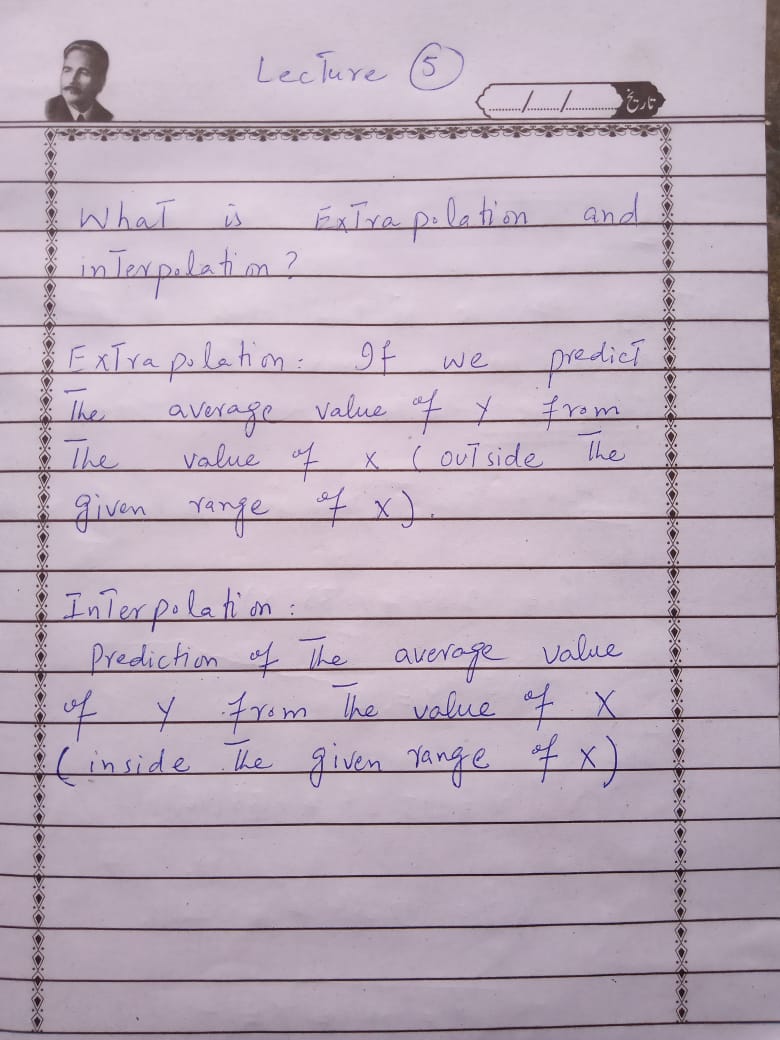 Lecture 5
....../....../.......... تاریخ
What is Extrapolation and
interpolation?
Extrapolation: If we predict
The average value of Y from
The value of X (outside The
given range of X).
Interpolation:
Prediction of The average value
of Y from The value of X
(inside The given range of X)